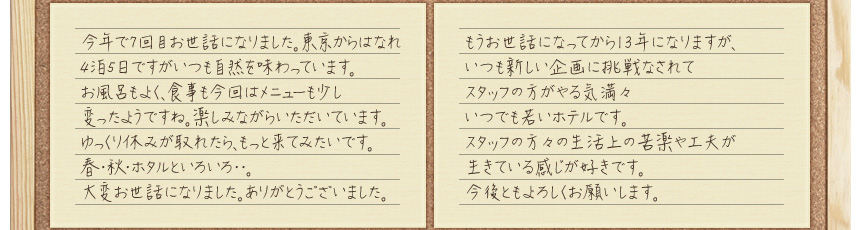 今年で7回目お世話になりました。東京からはなれ
4泊5日ですがいつも自然を味わっています。
お風呂もよく、食事も今回はメニューも少し
変ったようですね。楽しみながらいただいています。
ゆっくり休みが取れたら、もっと来てみたいです。
春・秋・ホタルといろいろ・・。
大変お世話になりました。ありがとうございました。
もうお世話になってから13年になりますが、
いつも新しい企画に挑戦なされて
スタッフの方がやる気満々
いつでも若いホテルです。
スタッフの方々の生活上の苦楽や工夫が
生きている感じが好きです。
今後ともよろしくお願いします。